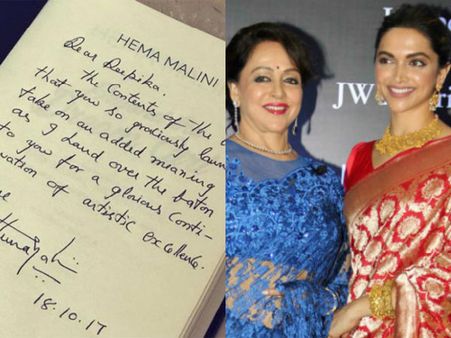 HEMA MALINI
Dear Deepika.
The Contents of the
that you so graciously
take on an added meaning
as I hand over the baton
to you for a glorious Conti-
uation of artistic excellence.
18.10.17
JW